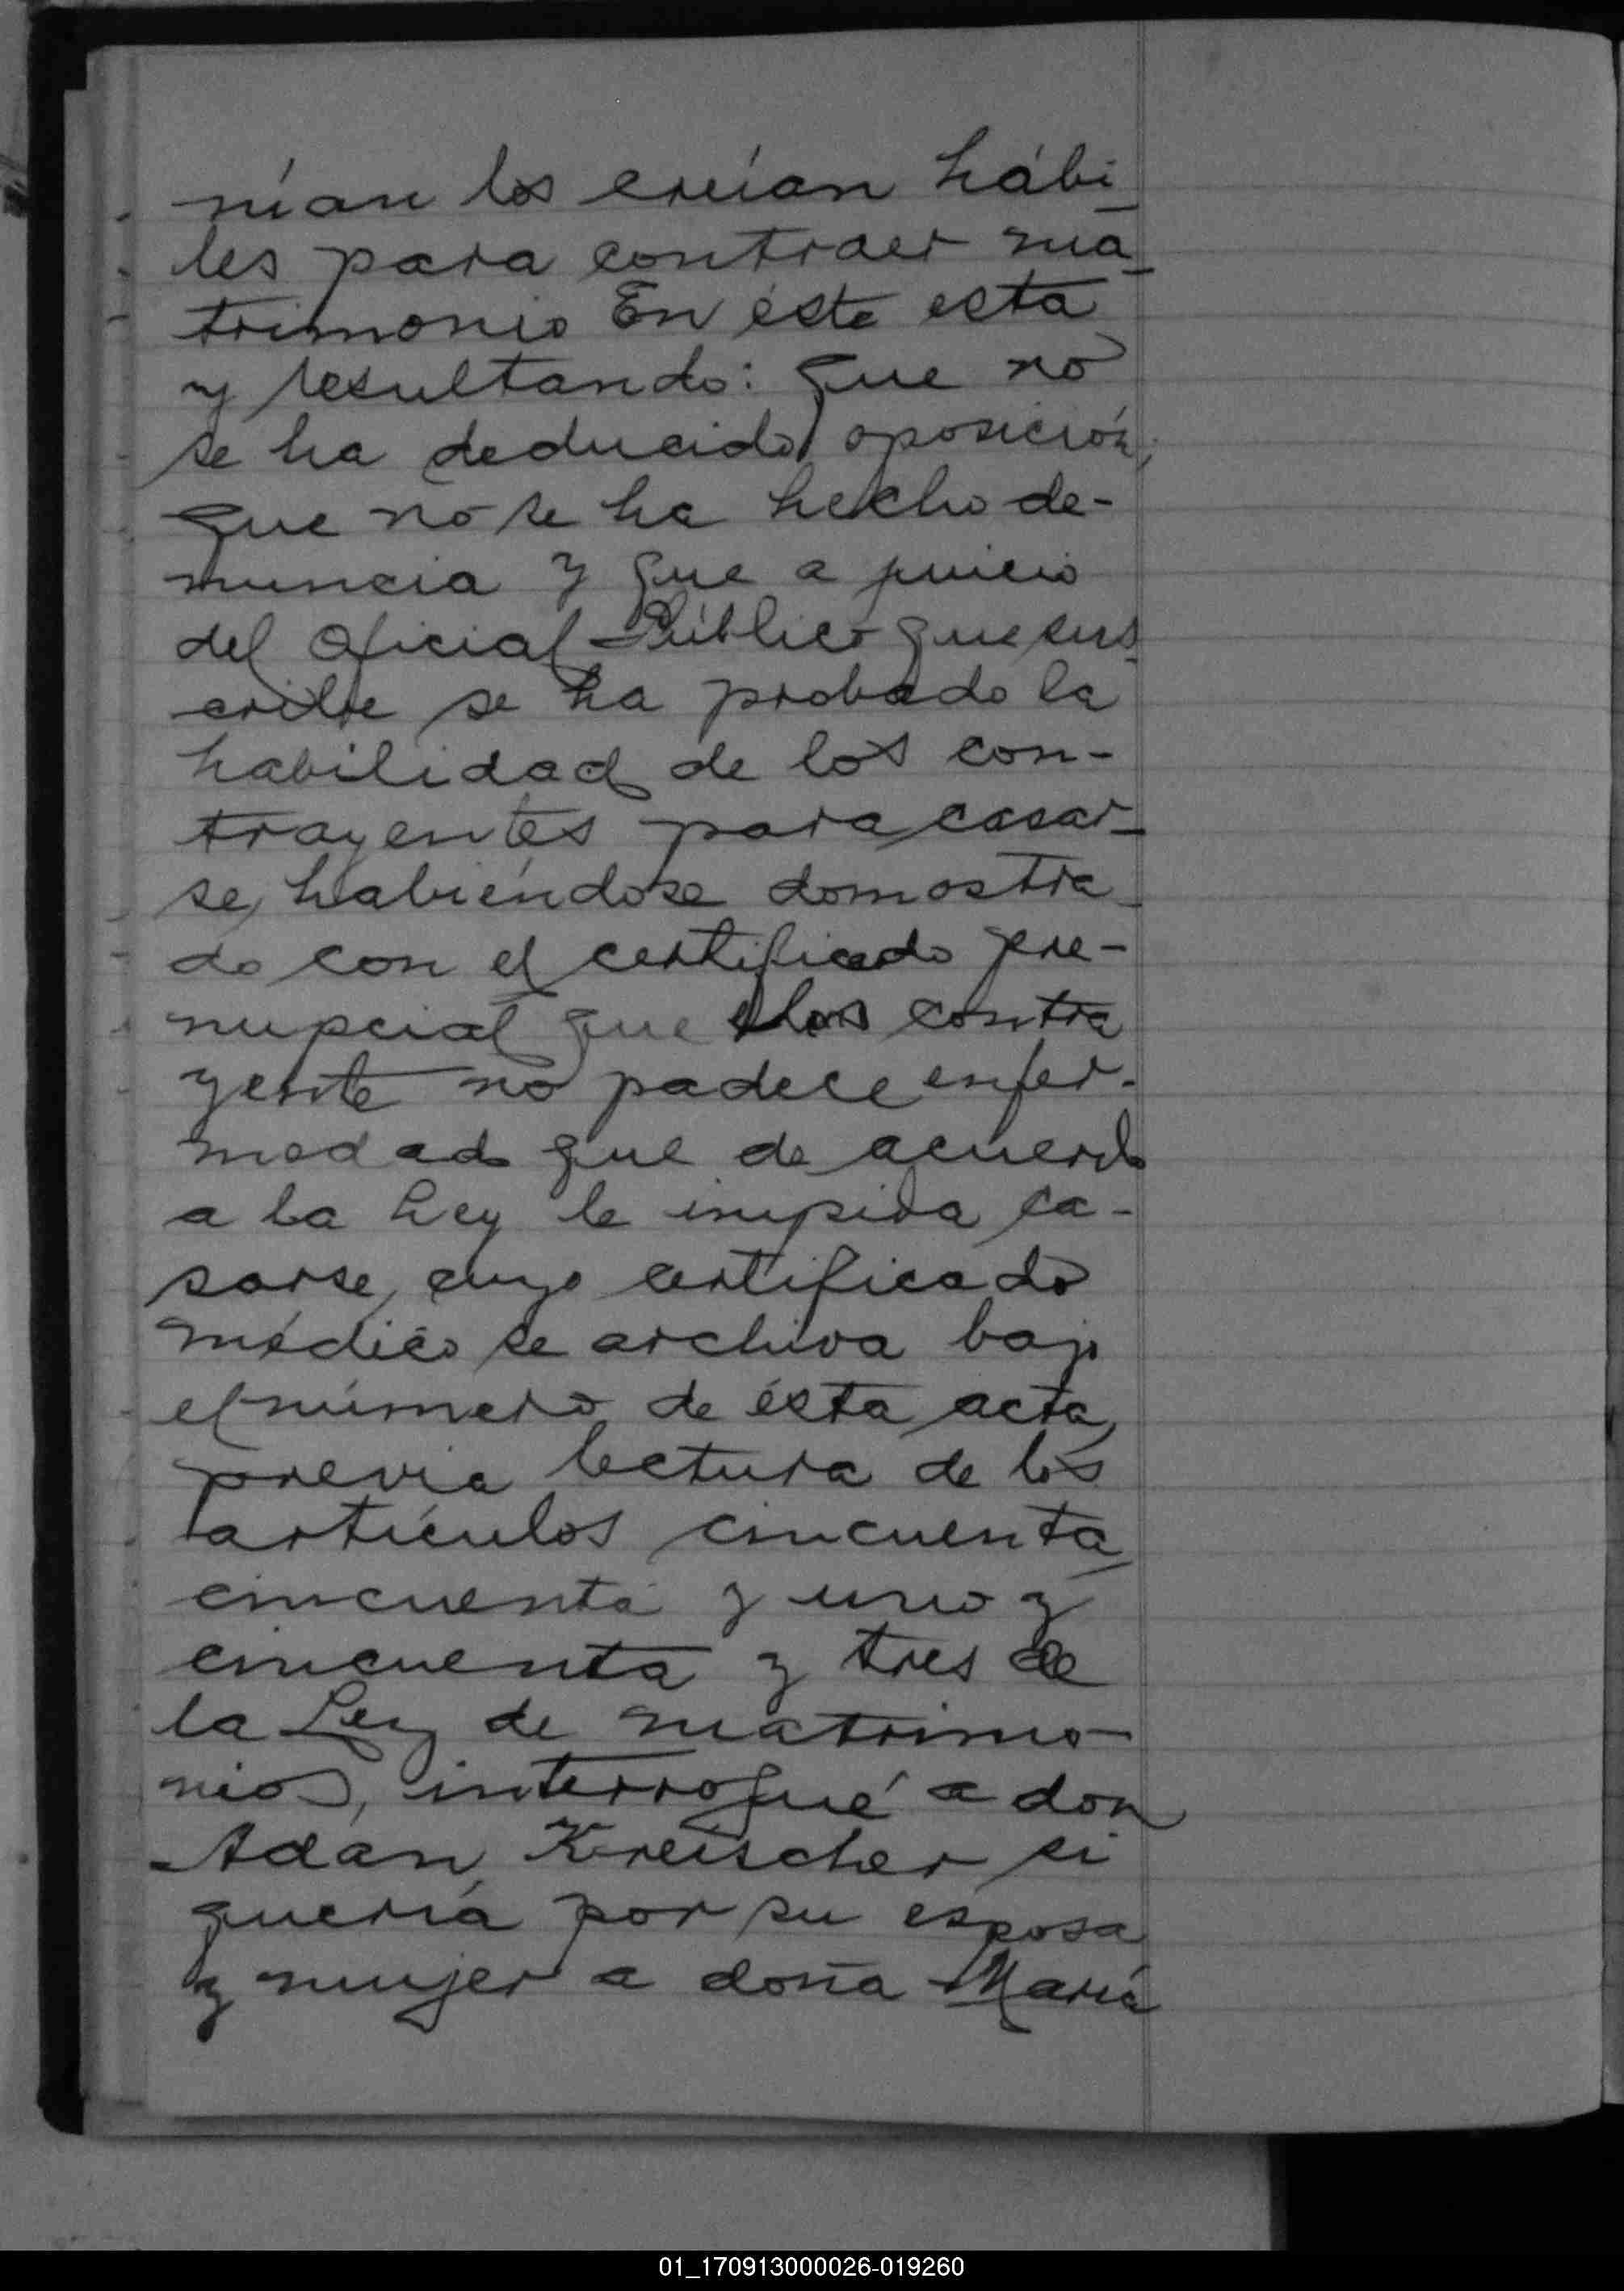 nían los creían hábi_
les para contraer ma_
trimonio En éste esta
y resultando: que no
se ha deducido oposición,
que no se ha hecho de-
nuncia y que a juicio
del Oficial Público que sus_
cribe se ha probado la
habilidad de los con-
trayentes para casar_
se, habiéndose domostra_
do con el certificado pre-
nupcial que contra
yente no padece enfer-
medad que de acuerdo
a la Ley le impida ca-
sarse, cuyo certificado
médico se archiva bajo
el número de ésta acta,
previa lectura de los
artículos cincuenta,
cincuenta y uno y
cincuenta y tres de
la Ley de matrimo-
nios, interrogué a don
Adán Kreischer si
quería por su esposa
y mujer a doña María
01_170913000026-019260